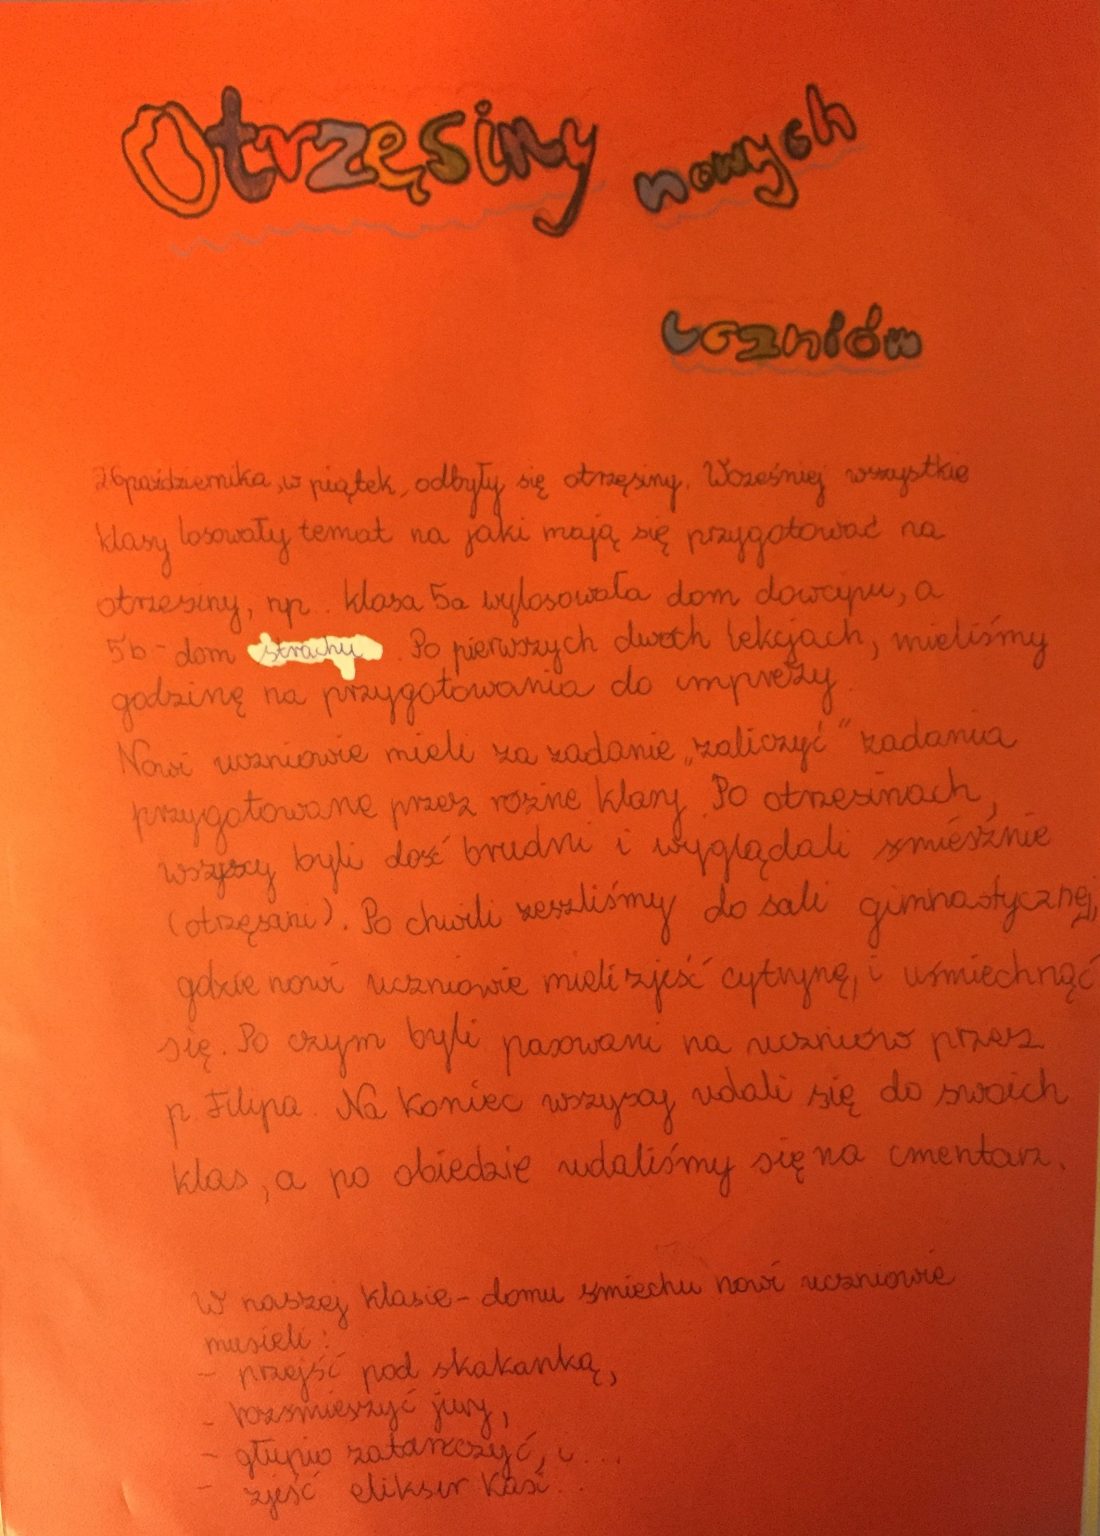 Otrzęsiny nowych
uczniów
26 października, w piątek, odbyły się otrzęsiny. Wcześniej wszystkie
klasy losowały temat na jaki mają się przygotować na
otrzęsiny, np. klasa 5a wylosowała dom dowcipu, a
5b - dom strachu. Po pierwszych dwóch lekcjach, mieliśmy
godzinę na przygotowania do imprezy.
Nowi uczniowie mieli za zadanie „zaliczyć" zadania
przygotowane przez rożne klasy. Po otrzęsinach,
wszyscy byli dość brudni i wyglądali śmiesznie
(otrzęsani). Po chwili zeszliśmy do sali gimnastycznej,
gdzie nowi uczniowie mieli zjeść cytrynę, i uśmiechnąć
się. Po czym byli pasowani na uczniów przez
p. Filipa. Na koniec wszyscy udali się do swoich
klas, a po obiedzie udaliśmy się na cmentarz.
W naszej klasie - domu śmiechu nowi uczniowie
musieli:
- przejść pod skakanką,
- rozśmieszyć jury,
- głupio zatańczyć, i ...
- zjeść eliksir Kasi...